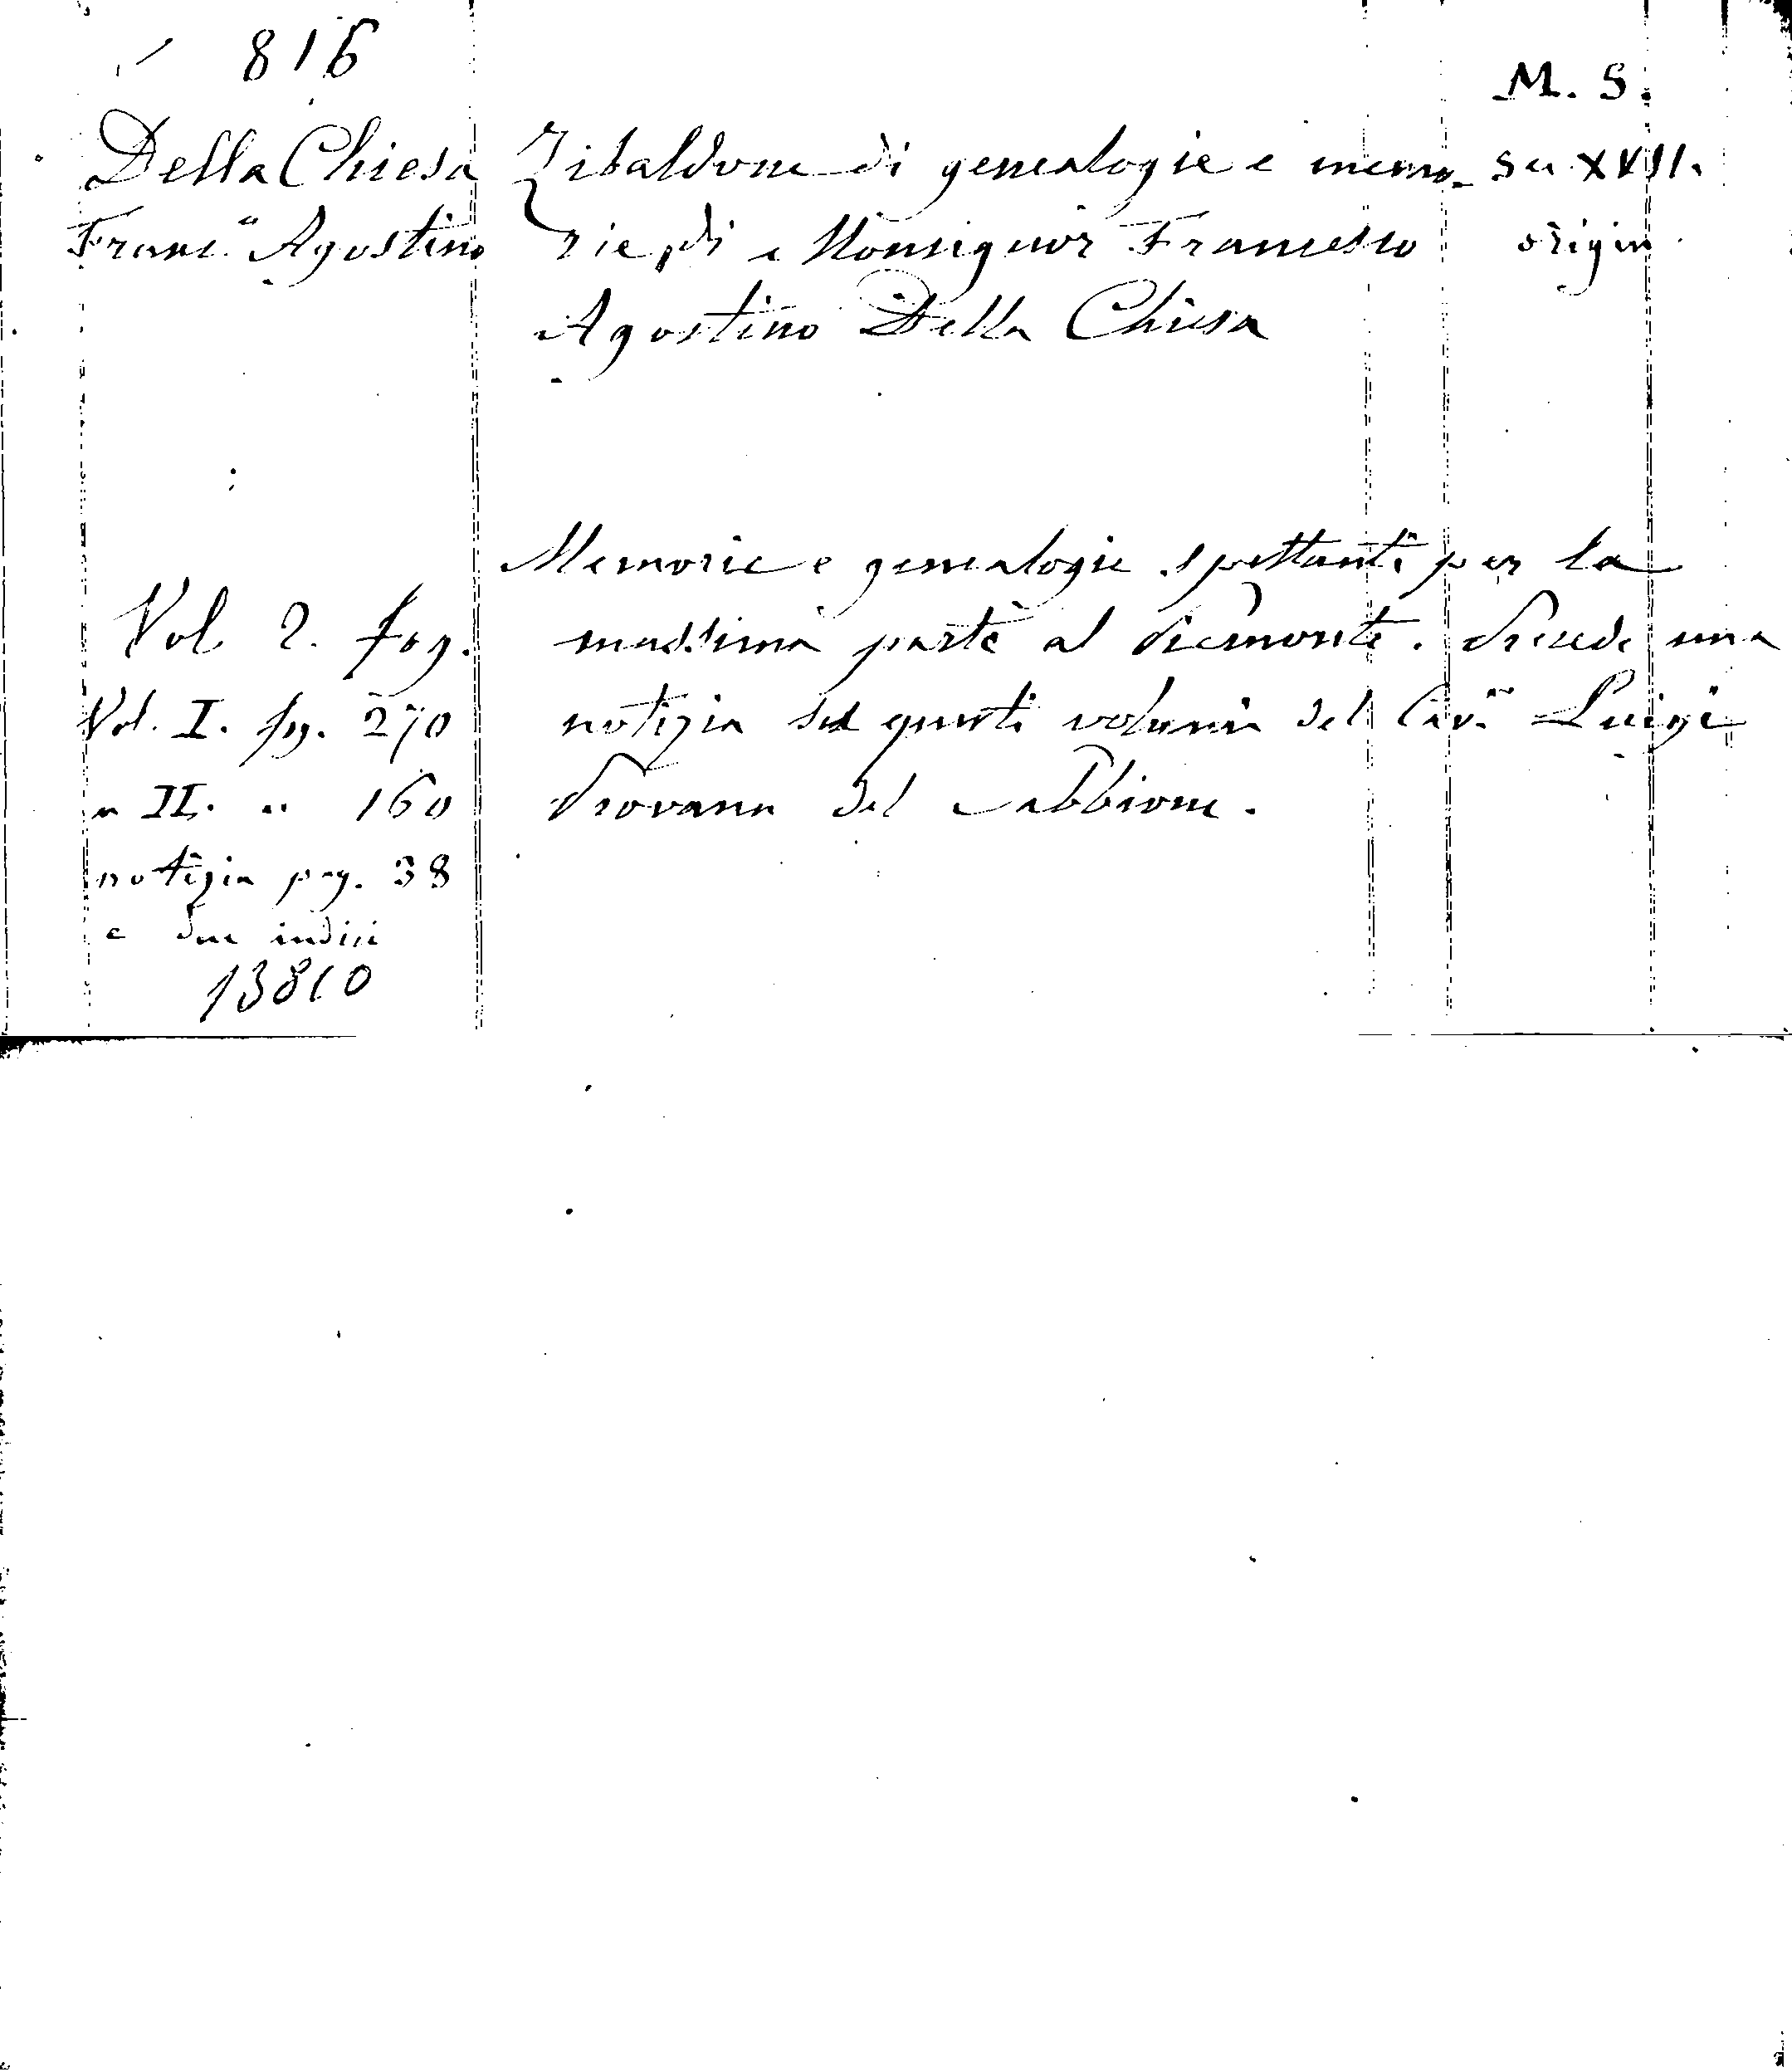 816
M. S.
Della Chiesa
Franc.º Agostino
Zibaldone di genealogie e memo-
rie di Monsignor Francesco
Agostino Della Chiesa
Sec XVII.
origin
Memorie e genealogie spettanti per la
massima parte al Piemonte. Precede una
notizia su questi volumi del Cav.e Luigi
Provana del Sabbione.
Vol 2. fog.
Vol. I. fog. 270
" II. " 160
notizia pag. 38
e due indici
13810